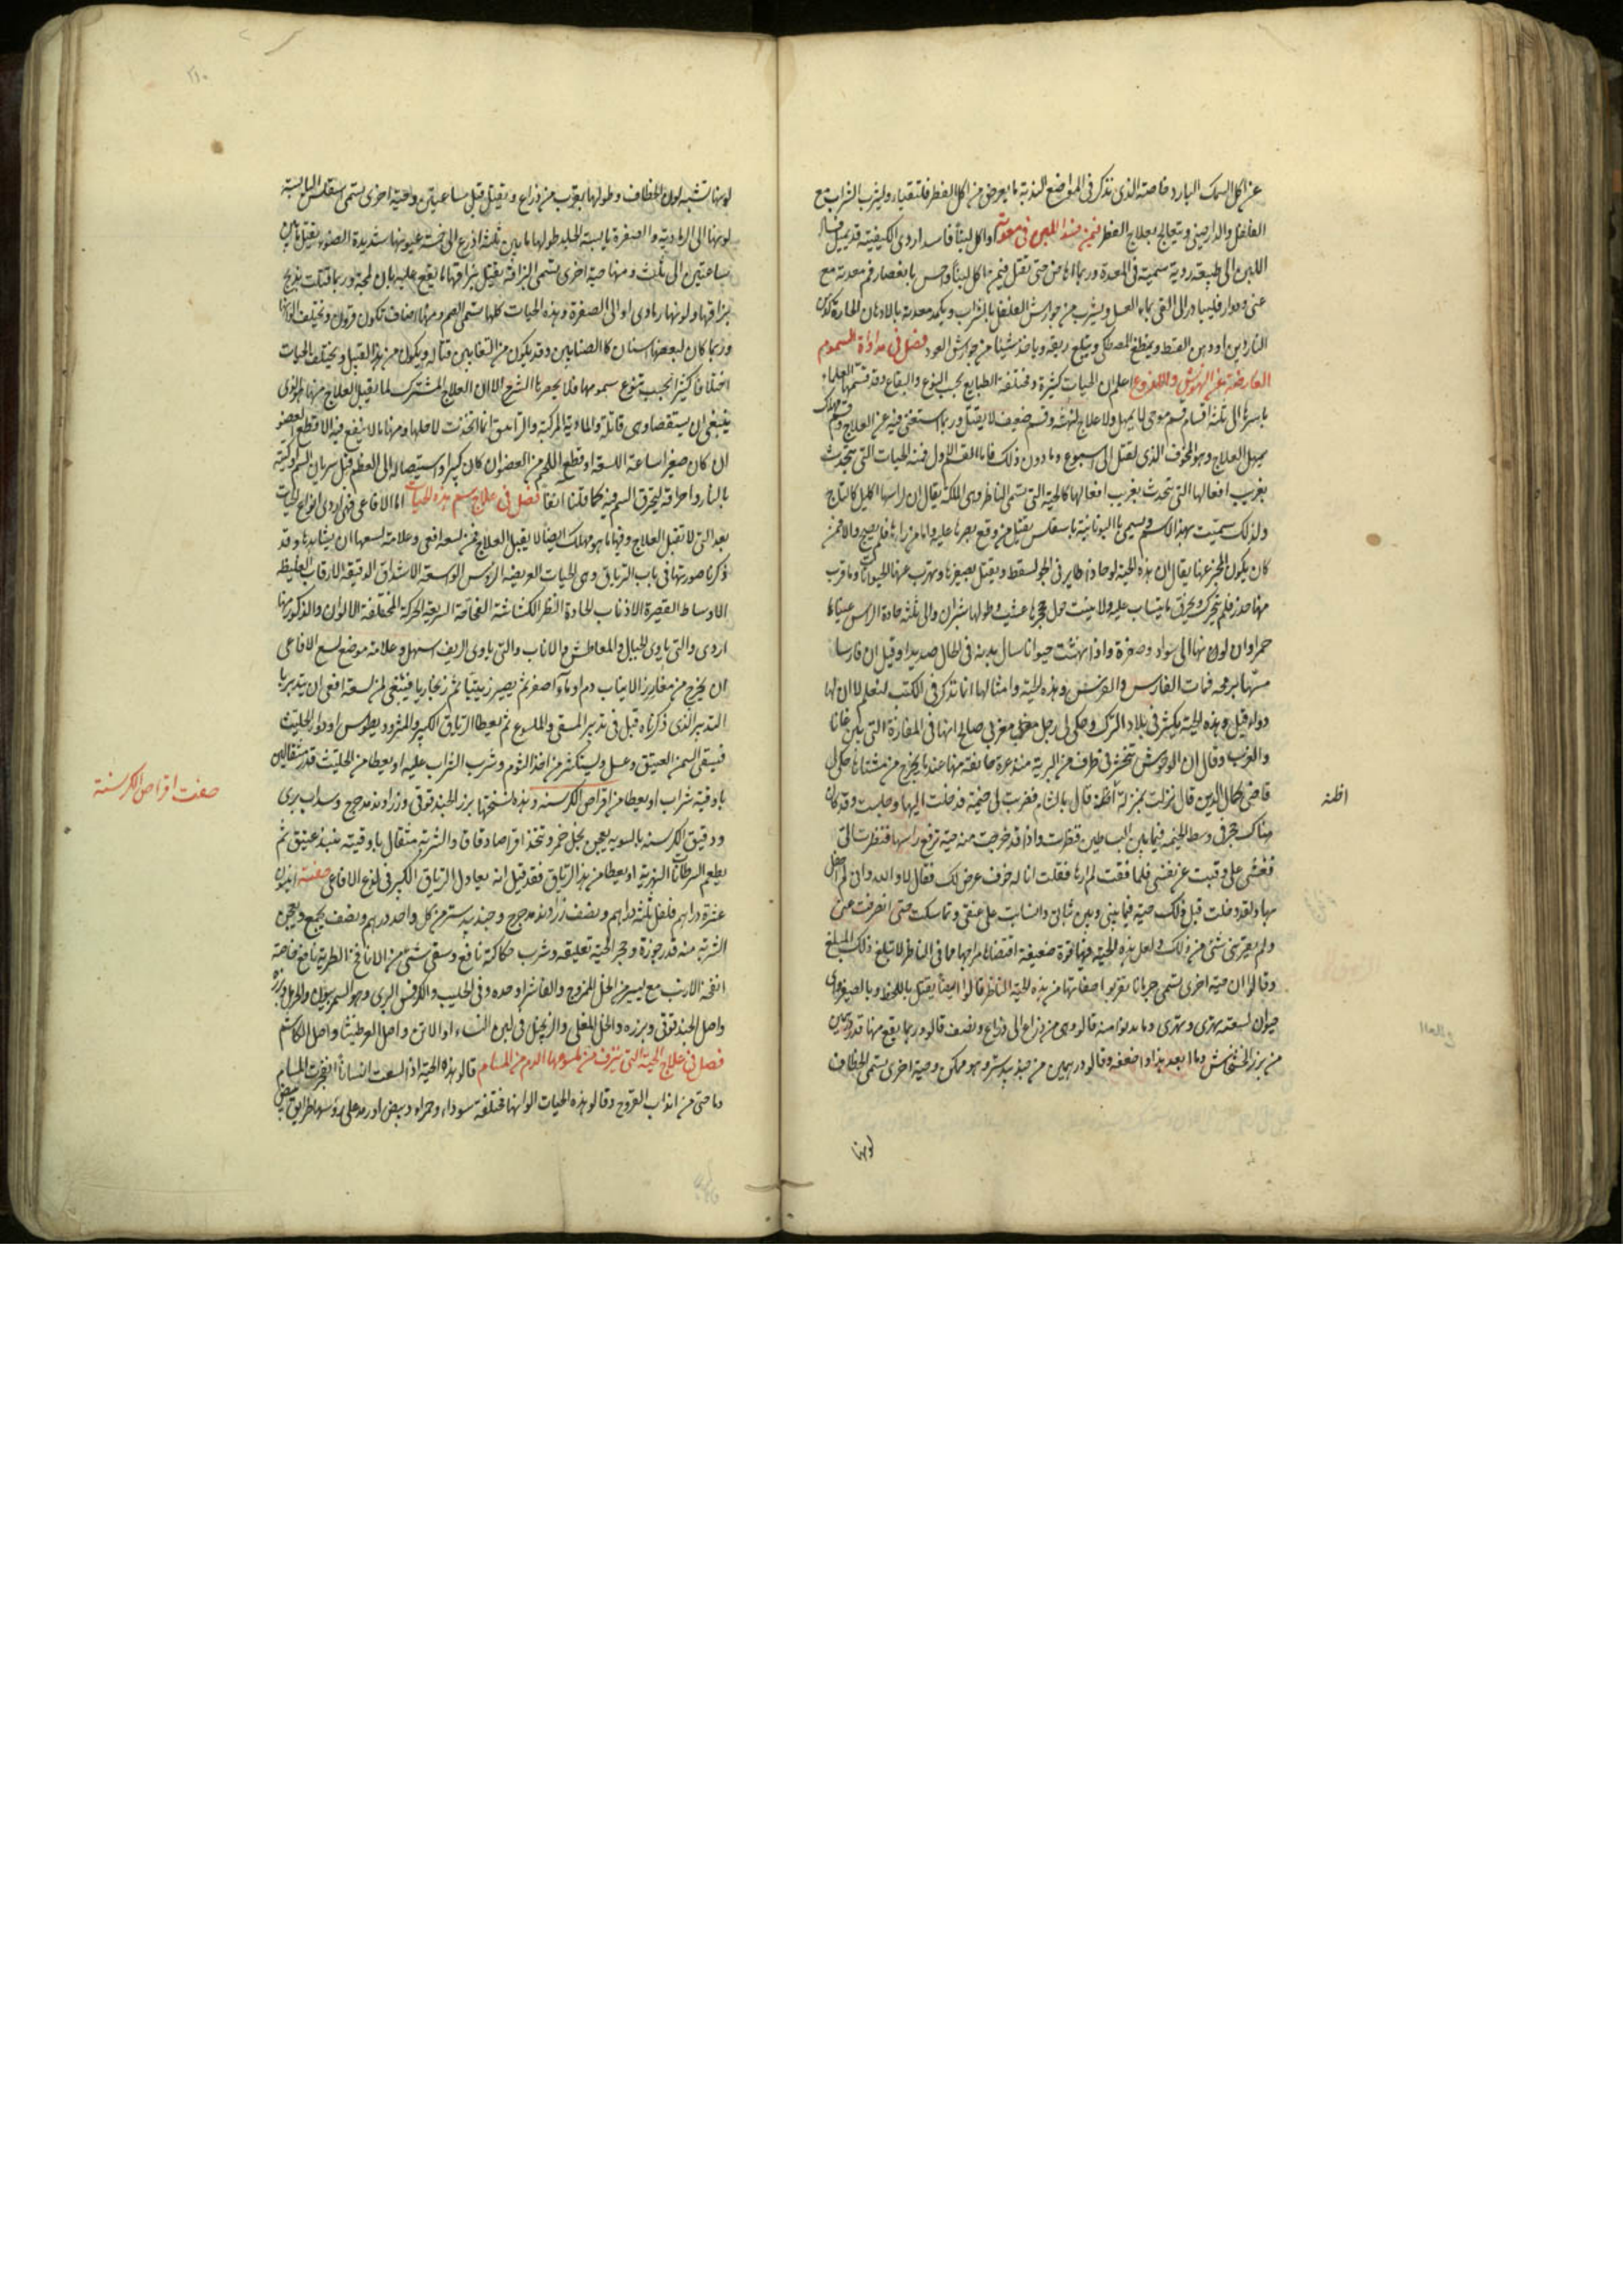 عن اكل السمك البارد خاصته الذى نذكر فى المواضع الندية ما يعرض من اكل الفطر فلتقياء وليشرب الشراب مع
الفلفل والدارصينى ويتعالج بعلاج الفطر فيمن فسد اللبن فى معدته او اكل لبنًا فاسدا ردى الكيفية قد يميل فساد
اللبن الى طبيعة ردية سمية فى المعدة وربما حتى تقتل فيمن اكل لبنًا واحس بانعصار فم معدته مع
غثى ودوار فليبادر الى القى بماء العسل ويشرب من جوارش الفلفل بالشراب ويكمد معدته بالادهان الحارة كدهن
الناردين او دهن القسط ويمضغ المصطكى ويبتلع ريقه وياخذ شيئا من جوارش العود فصل فى مداواة السموم
العارضة عن النهوش واللدوغ اعلم ان الحيات كثيرة ومختلفة الطبايع بحب النوع والبقاع وقد قسمها العلماء
باسرها الى ثلثة اقسام قسم موحى لا يمهل ولا علاج لنهشه وقسم ضعيف لا يقتل وربما استغنى فيه عن العلاج وقسم مهلك
يمهل العلاج وهو المخوف الذى يقتل الى اسبوع وما دون ذلك فاما القسم الاول فمنه الحيات التى تتحدث
بغريب افعالها التى تتحدث بغريب افعالها كالحية التى تسمى الناظر وهى الملكة يقال ان لراسها اكليل كالتاج
ولذلك سميت بهذا الاسم ويسمى باليونانية باسقلس يقتل من وقع بصرها عليه واما من راها فلم يصح والا فمن
كان يكون المخبر عنها يقال ان هذه الحية لو حاذاها طاير فى الجو لسقط ويقتل بصفيرها ويهرب عنها الحيوانات وما قرب
منها خدر فلم يتحرك ويحرق ما ينساب عليه ولا ينبت حول جحرها عشب وطولها شبران والى ثلثة حادة الراس عيناها
حمراوان لونها الى سواد وصفرة واذا نهشت حيوانا سال بدنه فى الحال صديدا وقيل ان فارسا
مسها برمحه فمات الفارس والفرس وهذه الحية وامثالها انما تذكر فى الكتب لتعلم لا ان لها
دواء قيل وهذه الحية يكثر فى بلاد الترك وحكى لى رجل مغربى صالح انها فى المفازة التى بين غانا
والغرب وقال ان الوحوش تتحشر فى طرف من البرية
قاضى كمال الدين قال نزلت بمنزلة اطنة قال بالشام فضربت لى خيمة فدخلت اليها وجلست وقد كان
هناك جحر فى وسط الخيمة فيما بين البساطين فنظرت واذا قد خرجت منه حية ترفع راسها فنظرت الى
فغشى على وغبت عن نفسى فلما افقت لم ارها فقلت
بها ولقد دخلت قبل ذلك حية فيما بينى وبين ثيابى وانسابت على عنقى وتماسكت حتى انصرفت عنى
ولم يعترنى شى من ذلك ولعل هذه الحية فيها قوة ضعيفة اقتضاها مزاجها فما فى الناظر لا تبلغ ذلك المبلغ
وقالوا ان حية اخرى تسمى جرمانا تقرب صفاتها من هذه الحية الناظر قالوا ايضًا يقتل باللحظ وبالصفير واى
حيوان لسعته يهترى ومهترى وما يدنوا منه قالو وهى من ذراع الى ذراع ونصف قالو وربما ينفع منها قدر درهمين
من بزر الخشخاش وما ابعد هذا واضعفه وقالو درهمين من جندبيدستر وهو ممكن وحية اخرى تسمى الخطاف
لونها
اطنة
٢١٠
لونها تشبه لون الخطاف وطولها بقرب من ذراع ويقتل قبل ساعتين وحية اخرى تسمى اسقلس اليابسة
لونها الى الرمادية والصفرة يابسة الجلد طولها ما بين ثلثة اذرع الى خمسة عيونها شديدة الضوء يقتل ما بين
ساعتين الى ثلث ومنها حية اخرى تسمى البزاقة يقتل ببزاقها ما يقع عليه
بزاقها ولونها رماوى او الى الصفرة وهذه الحيات كلها تسمى الصم ومنها اصناف تكون قرون وتختلف الوانها
وربما كان لبعضها اسنان كالصنانير وقد يكون من الثعابين قتاله ويكون من هذا القبيل ويختلف الحيات
اختلافا كثيرا بحسب تنوع سمومها فلا يحصرها الشرح الا ان العلاج المشترك لما يقبل العلاج منها هو الذى
ينبغى ان يستقصا وهى قاتلة والمداوية المركبة والترياق انما اتخذت لاجلها ومنها ما لا ينفع فيه الا قطع العضو
ان كان صغيرا ساعة اللسعة او قطع اللحم من العضو ان كان كبيرا واستيصاله الى العظم قبل سريان السم او كيته
بالنار واحراقه ليحترق السم فيه كما قلنا انفا فصل فى علاج سم هذه الحيات اما الافاعى فهى اردى انواع الحيات
بعد التى لا تقبل العلاج وفيها ما هو مهلك ايضًا لا يقبل العلاج فمن لسعه افعى وعلامة لسعها ان يشاهدها وقد
ذكرنا صورتها فى باب الترياق وهى الحيات العريضة الروس الواسعة الاشداق الدقيقة الارقاب الغليظة
الاوساط القصيرة الاذناب الحادة النظر الكشاشة النفاخة السريعة الحركة المختلفة الالوان والذكور منها
اردى والتى ياوى الجبال والمعاطش والاناث والتى ياوى الريف اسهل وعلامة موضع لسع الافاعى
ان يخرج من مغارز الانياب دم او ماء اصفر ثم يصير زيتيا ثم زنجاريا فينبغى لمن لسعه افعى ان يتدبر بها
التدبير الذى ذكرناه قبل فى تدبير المسقى والملسوع ثم يعطا الترياق الكبير والمثروديطوس او دواء الحلتيت
فيسقى السمن العتيق وعسل وليستكثر من اخذ الثوم وشرب الشراب عليه او يعطا من الحلتيت قدر مثقالين
باوقية شراب او يعطا من اقراص الكرسنه وهذه نسختها بزر الحندقوقى وزراوند مدحرج وسداب برى
ودقيق الكرسنه بالسويه يعجن بخل خمر ويتخذ اقراصا دقاق والشربه مثقال باوقيه نبيذ عتيق ثم
يطعم السرطانات النهرية او يعطا من هذا الترياق فقد قيل انه يعادل الترياق الكبير فى لدغ الافاعى صفته انيسون
عشرة دراهم فلفل ثلثة دراهم ونصف زراوند مدحرج وجندبيدستر من كل واحد درهم ونصف يجمع ويعجن
الشربة منه قدر جوزة وحجر الحية تعليقه وشرب حكاكته نافع وسقى شى من الانافح الطرية نافع خاصة
انفحة الارنب مع يسير من الخل الممزوج والفاشرا وحده وفى الحليب والكرفس البرى وهو السمرنيون والحرمل وبزره
واصل الحندقوقى وبزره والخل المغلى والزنجبيل فى لبن النساء او الاتن واصل العرطنيثا واصل الكاشم
فصل فى علاج الحية التى ينزف من لسوعها الدم من المسام قالو هذه الحية اذا لسعت انسانًا انفجرت المسام
دما حتى من انداب القروح وقالو هذه الحيات الوانها مختلفة سوداء وحمراء وبيض او رمد على رؤسها طرايق بيض
صفت اقراص الكرسنة